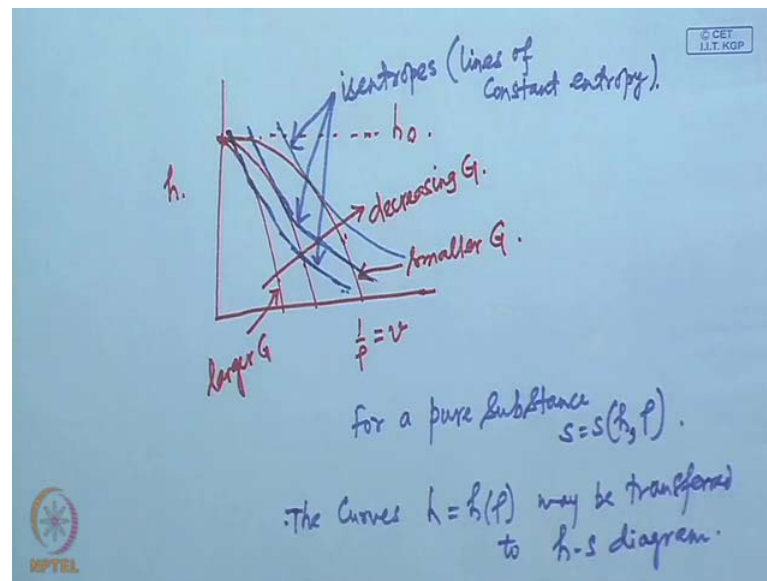 © CET
I.I.T. KGP
isentropes (lines of
Constant entropy).
h.
h₀.
decreasing G.
smaller G.
larger G
1/ρ = v
for a pure substance
s = s(h, ρ).
The Curves h = h(ρ) may be transferred
to h-s diagram.
NPTEL